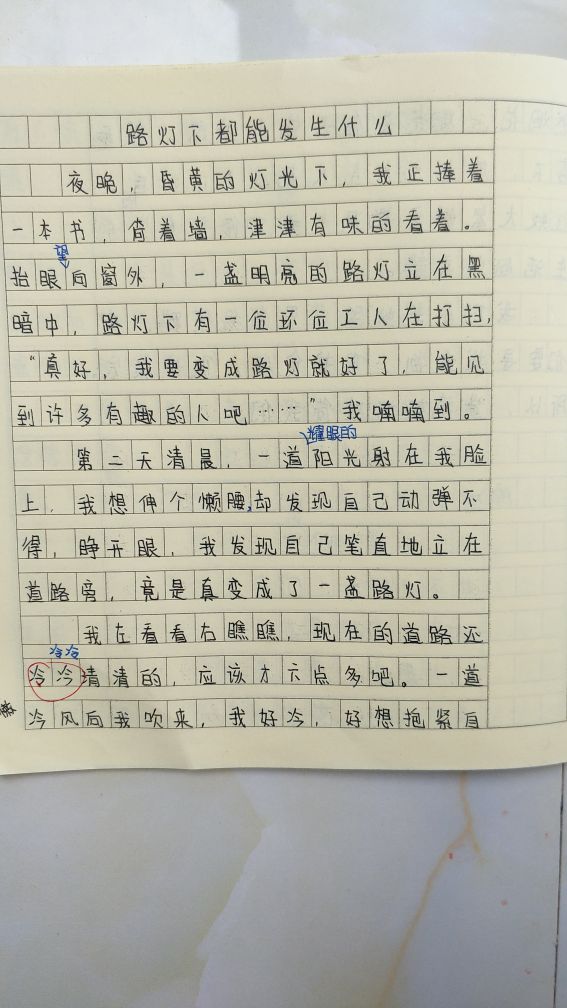 路灯下都能发生什么
夜晚，昏黄的灯光下，我正捧着
一本书，倚着墙，津津有味的看着。
望
抬眼向窗外，一盏明亮的路灯立在黑
暗中，路灯下有一位环位工人在打扫，
“真好，我要变成路灯就好了，能见
到许多有趣的人吧……”我喃喃到。
耀眼的
第二天清晨，一道阳光射在我脸
上，我想伸个懒腰，却发现自己动弹不
得，睁开眼，我发现自己笔直地立在
道路旁，竟是真变成了一盏路灯。
我左看看右瞧瞧，现在的道路还
冷冷
冷冷清清的，应该才六点多吧。一道
冷风向我吹来，我好冷，好想抱紧自